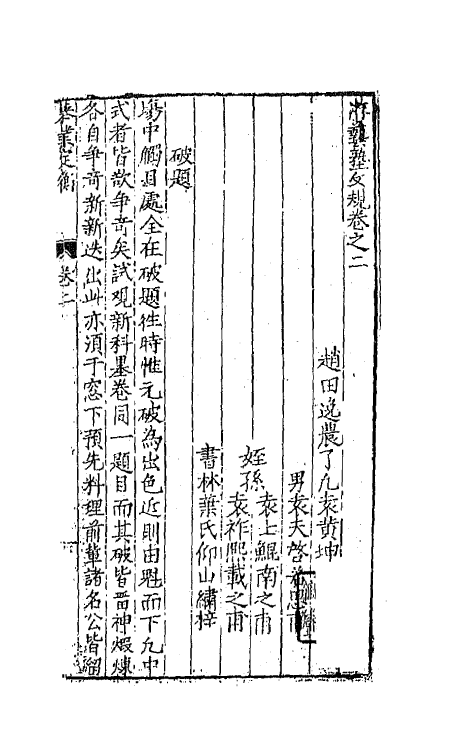 游藝塾文規卷之二
趙田逸農了凡袁黄坤
男袁天啓若思甫
姪袁士鯤南之甫
孫袁祚熙載之甫
書林葉氏仰山繡梓
破題
塲中觸目處全在破題徃時惟元破為出色近則由魁而下凡中
式者皆欲争奇矣試观新科墨卷同一題目而其破皆晋神煆煉
各自争奇新新迭出此亦須于窓下預先料理前輩諸名公皆留
舉業定衡
卷二